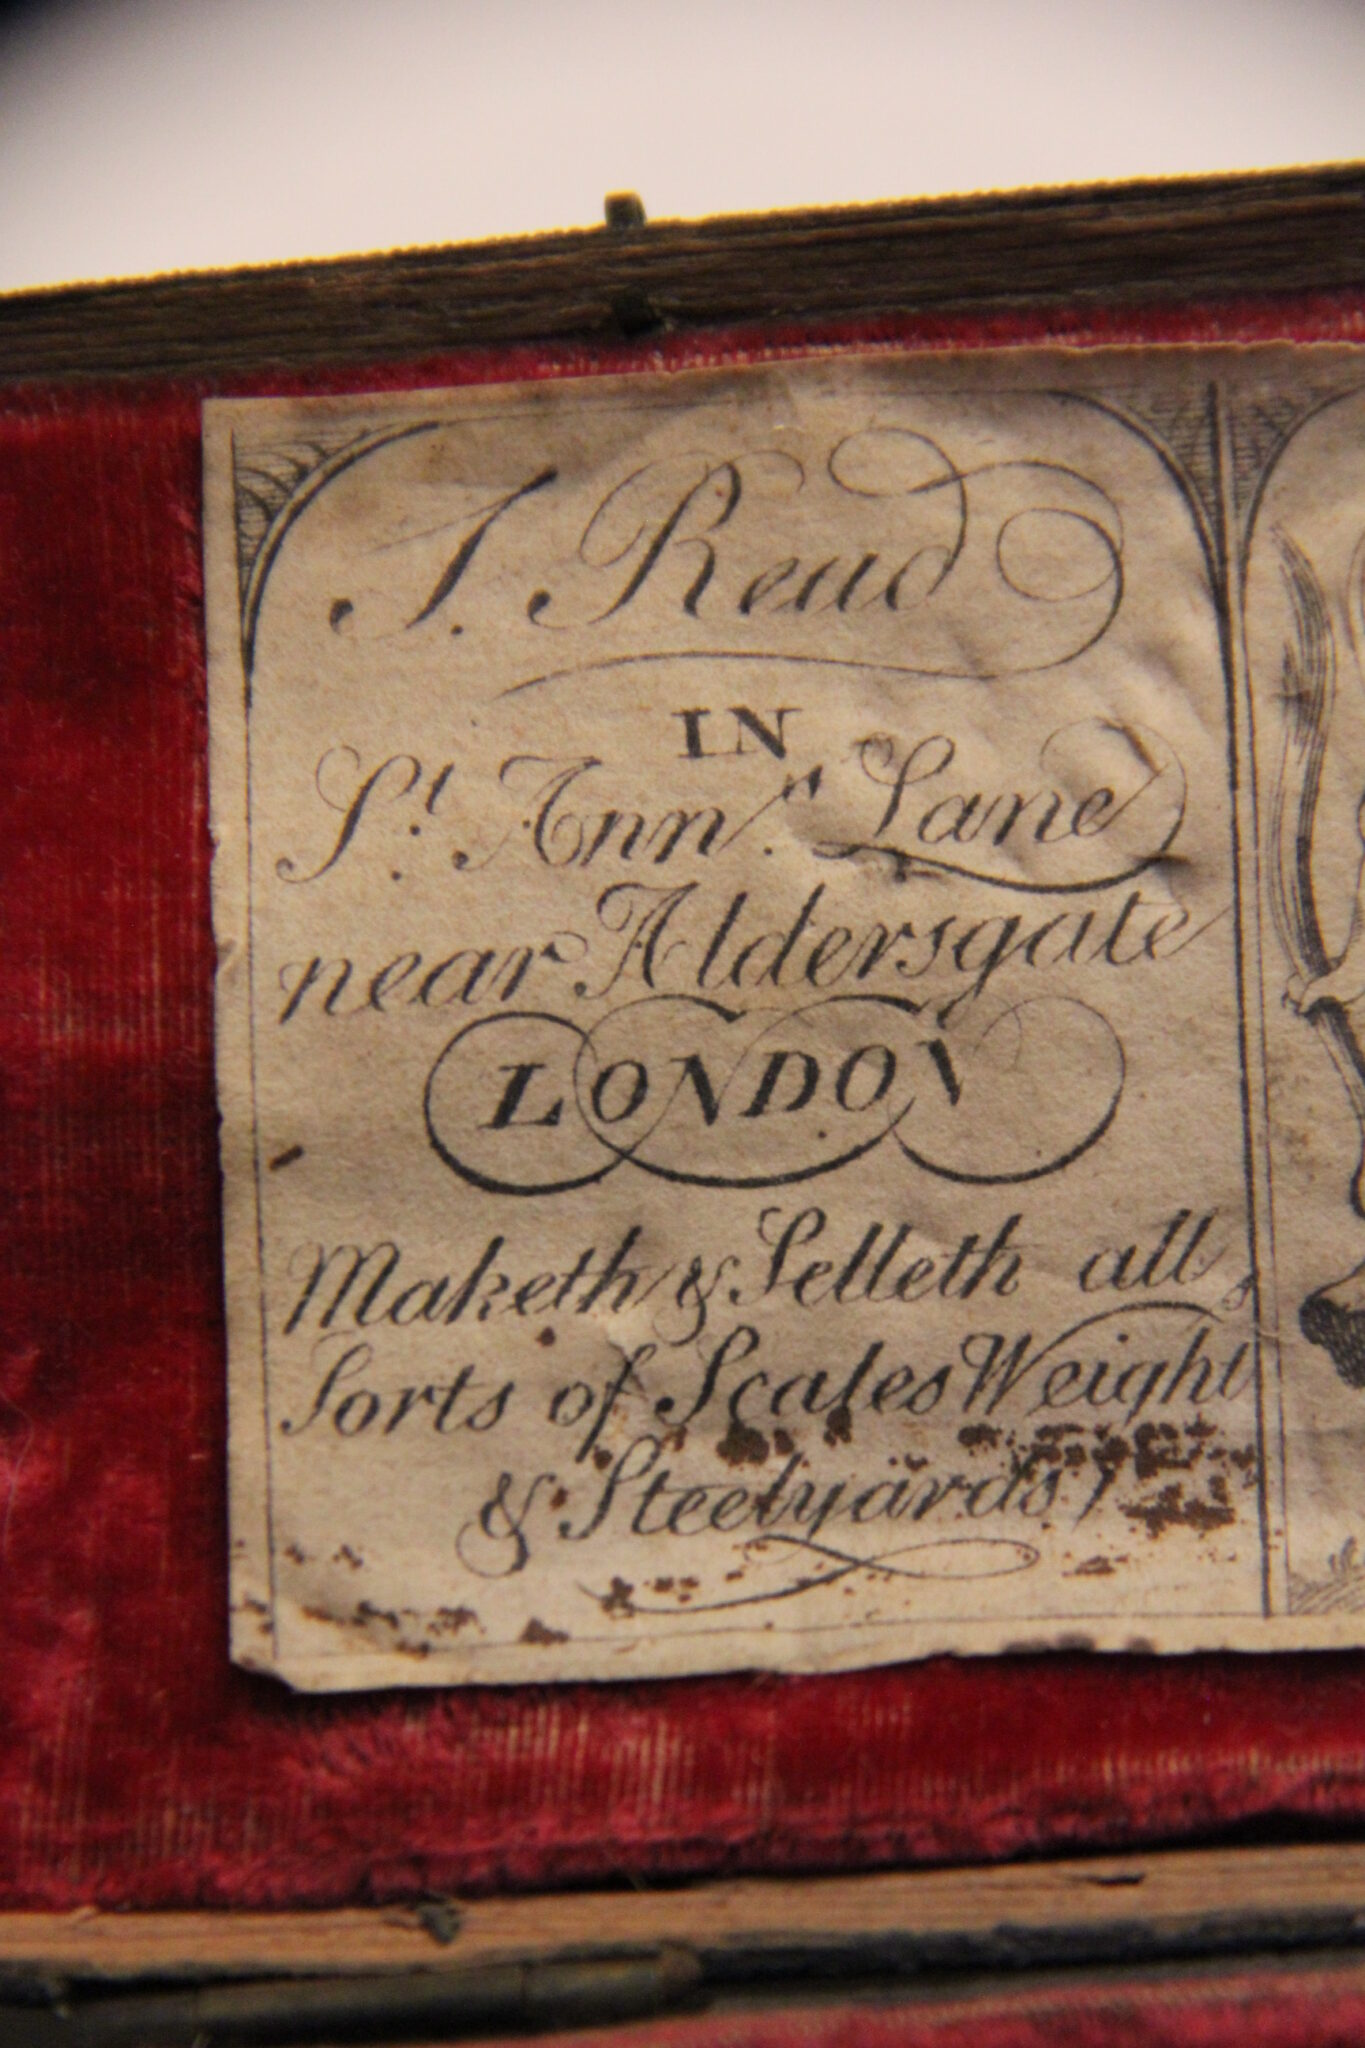 J. Read
IN
St. Ann's Lane
near Aldersgate
LONDON
Maketh & Selleth all
Sorts of Scales Weights
& Steelyards,